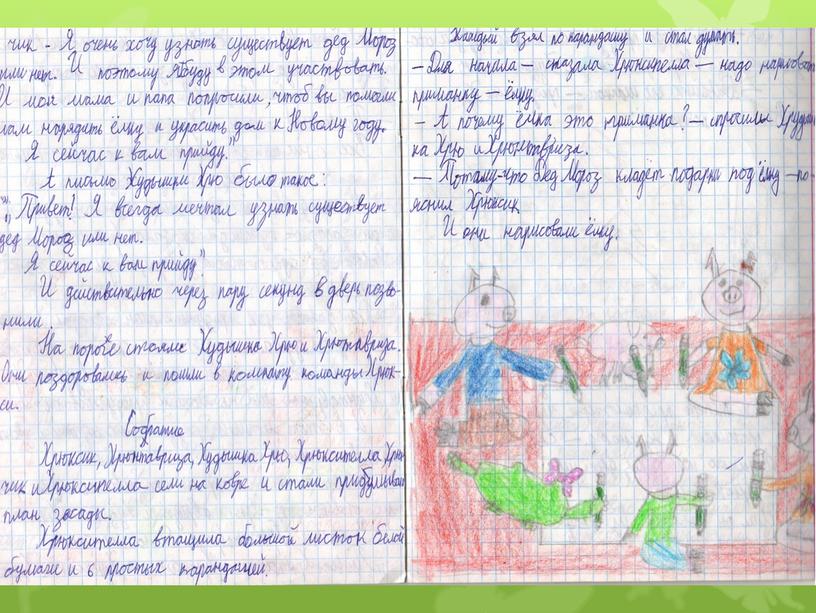 чик - Я очень хочу узнать существует дед Мороз
или нет. И поэтому Я буду в этом участвовать.
И моя мама и папа попросили, чтоб вы помогли
нам нарядить ёлку и украсить дом к Новому году.
Я сейчас к вам прийду."
А письмо Худышки Хрю было такое:
"Привет! Я всегда мечтал узнать существует
дед Мороз или нет.
Я сейчас к вам прийду".
И действительно через пару секунд в дверь позво-
нили.
На пороге стояли Худышка Хрю и Хрюнтавриза.
Они поздоровались и пошли в комнату команды Хрюк-
си.
Собрание
Хрюксик, Хрюнтавриза, Худышка Хрю, Хрюксителла Хрюн-
чик и Хрюксителла сели на ковре и стали придумывать
план засады.
Хрюксителла втащила большой листок белой
бумаги и 6 простых карандашей.
Каждый взял по карандашу и стал думать.
— Для начала — сказала Хрюкситела — надо нарисовать
приманку — ёлку.
- А почему ёлка это приманка? — спросили Худыш-
ка Хрю и Хрюнтавриза.
— Потому-что Дед Мороз кладёт подарки под ёлку — по-
яснил Хрюксик.
И они нарисовали ёлку.